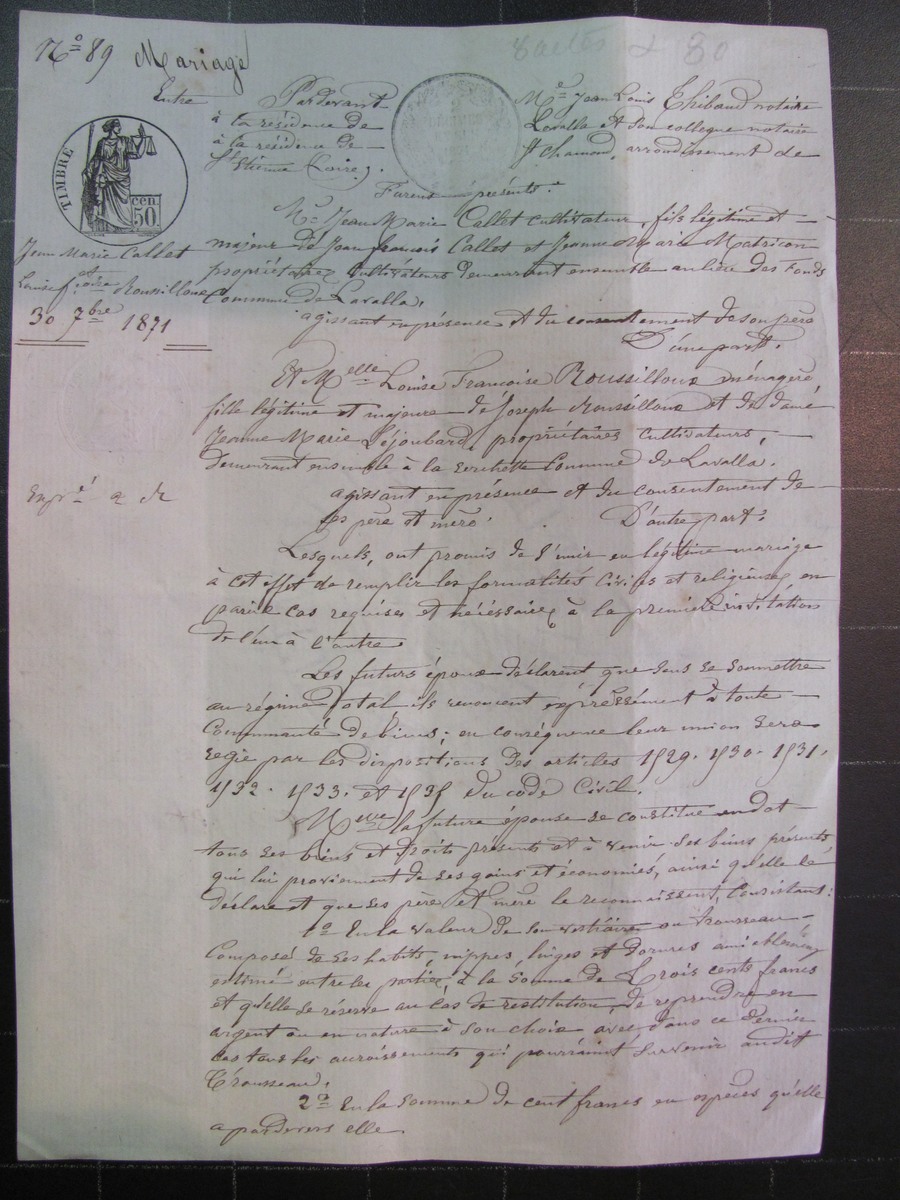 No 89 Mariage
Entre
TIMBRE
cen. 50
Jean Marie Callet
et
Louise fçoise Roussilloux
30 7bre 1871
Expé a
Pardevant Me Jean Louis Thibaud notaire
à la résidence de Lavalla et son collègue notaire
à la résidence de St chamond, arrondissement de
St Etienne (Loire).
Furent présents :
Mr Jean Marie Callet cultivateur, fils légitime et
majeur de Jean françois Callet et Jeanne Marie Matricon
propriétaires cultivateurs demeurant ensemble au lieu des Fonds
Commune de Lavalla.
agissant en présence et du consentement de son père
D'une part.
Et Melle Louise Françoise Roussilloux ménagère
fille légitime et majeure de Joseph Roussilloux et de dame
Jeanne Marie Léjoubard, propriétaires cultivateurs,
demeurant ensemble à la Commune de Lavalla.
agissant en présence et du consentement de
ses père et mère. D'autre part.
Lesquels, ont promis de s'unir en légitime mariage
à cet effet de remplir les formalités civiles et religieuses, en
pareil cas requises et nécessaires à la première invitation
de l'un à l'autre.
Les futurs époux déclarent que sans se soumettre
au régime dotal ils renoncent expressément à toute
Communauté de biens ; en conséquence leur union sera
régie par les dispositions des articles 1529. 1530. 1531.
1532. 1533. et 1535 du code Civil.
la future épouse se constitue en dot
tous ses biens et droits présents et à venir. Ses biens présents,
qui lui proviennent de ses gains et économies, ainsi qu'elle le
déclare et que ses père et mère le reconnaissent, Consistant :
1o En la valeur de son vestiaire ou trousseau
Composé de ses habits, nippes, linges et dorures
estimé entre les parties, à la somme de Trois cents francs
et qu'elle se réserve au cas de restitution, de reprendre en
argent ou en nature à son choix avec dans ce dernier
cas tous les accroissements qui pourraient survenir audit
Trousseau.
2o En la somme de cent francs en espèces qu'elle
a pardevers elle.